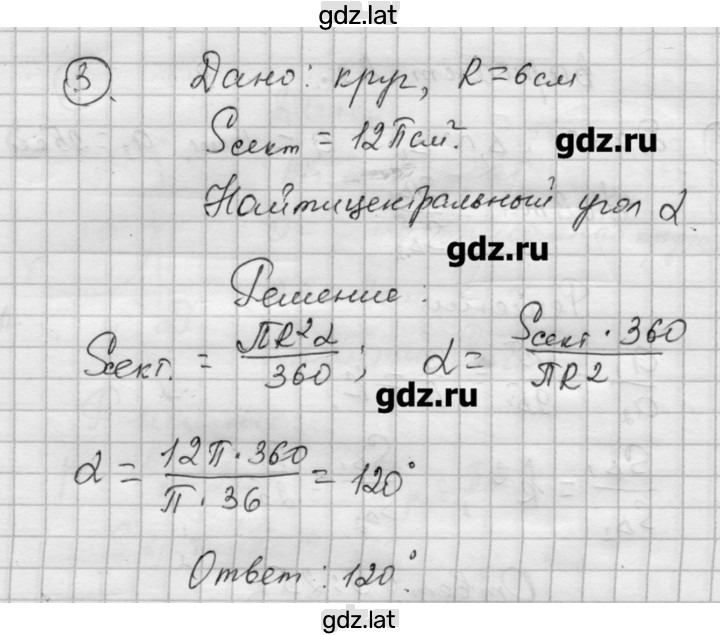 gdz.lat
3. Дано: круг, R=6см
Sсект = 12π см².
gdz.lat
Найти центральный угол α.
gdz.lat
Решение:
Sсект. = πR²α / 360 ; α = Sсект · 360 / πR²
gdz.lat
α = 12π · 360 / π · 36 = 120°
Ответ: 120°.
gdz.lat